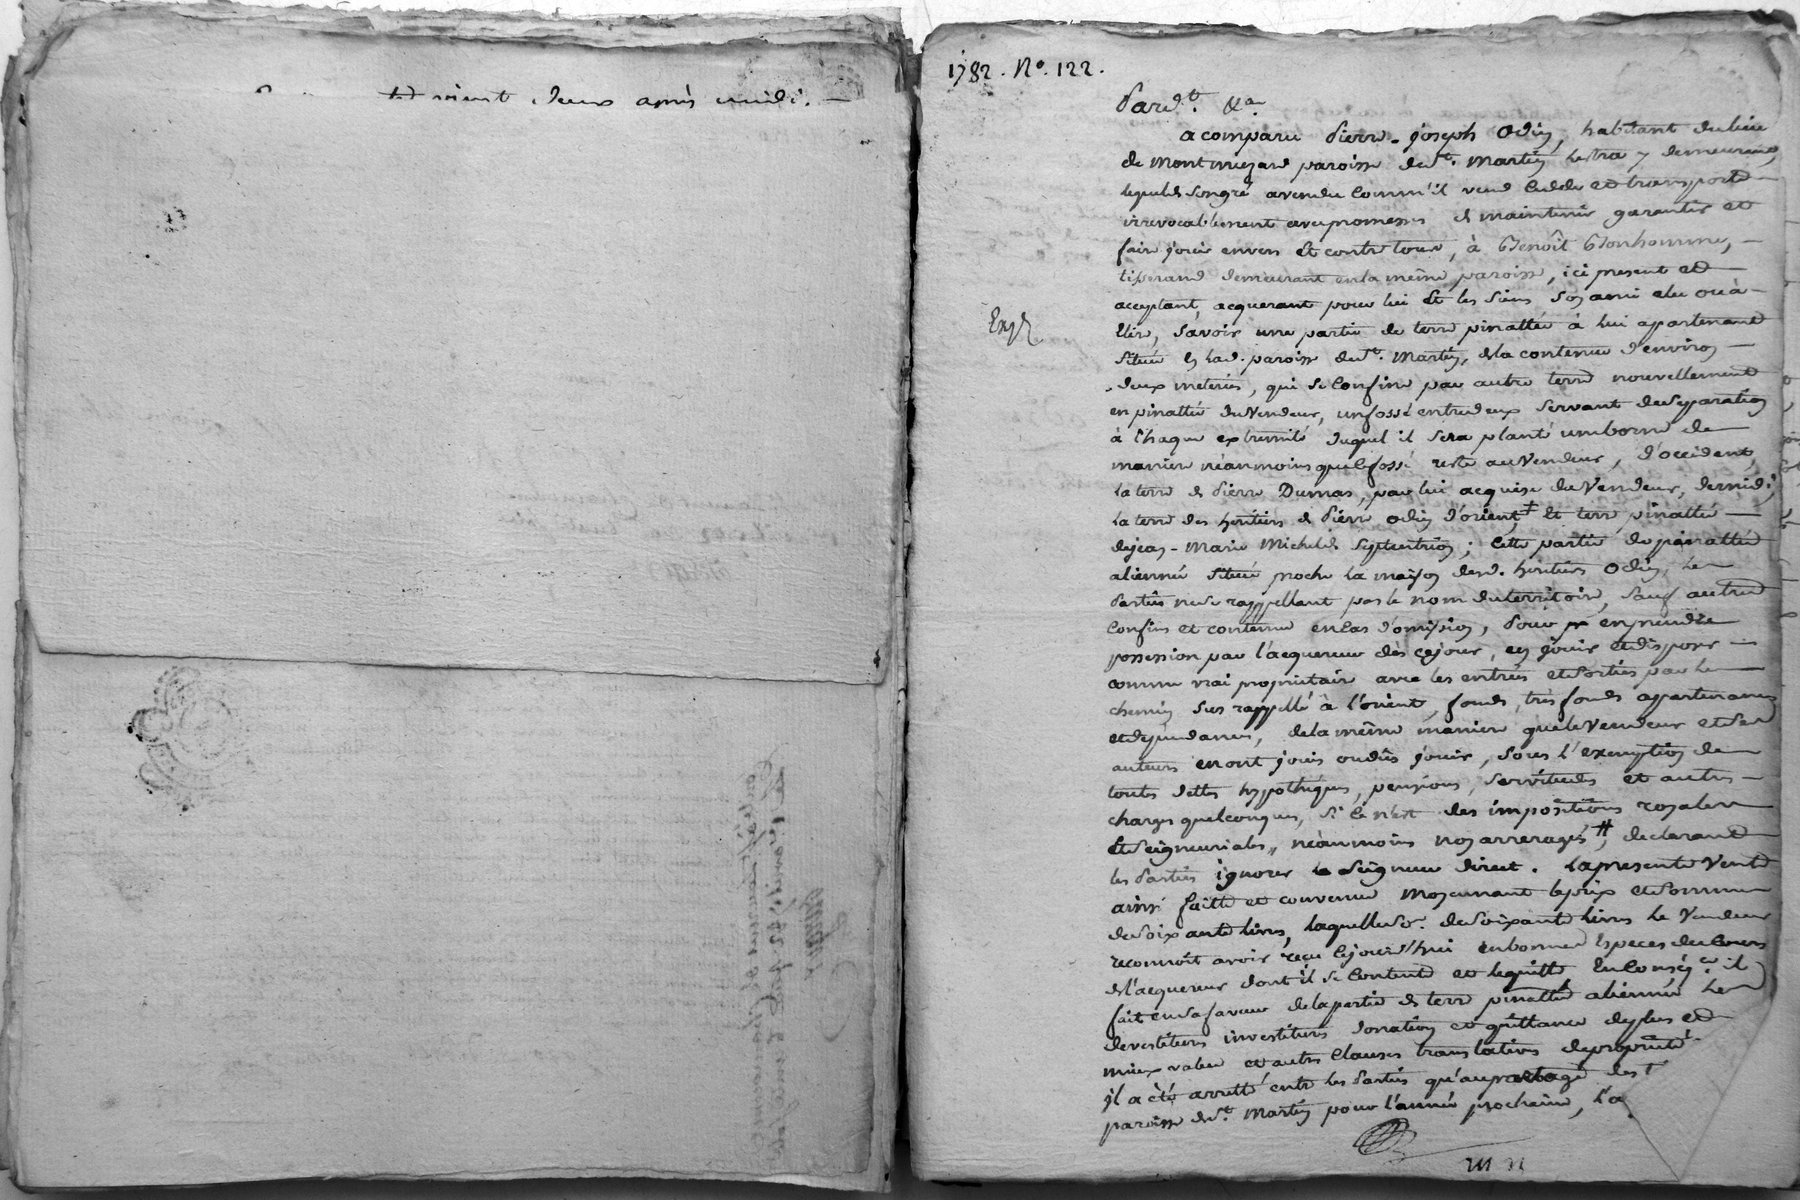 vingt deux après midi. —
1782. No. 122.
Pard.t &a
a comparu Pierre-joseph Odin, habitant du lieu
de Montmezard paroisse de St. Martin Lestra y demeurant,
lequel de son gré a vendu comm'il vend cede et transporte —
irrevocablement avec promesses de maintenir garantir et
faire jouir envers et contre tous, à Benoît Bonhomme, —
tisserand demeurant en la même paroisse, ici present et —
acceptant, acquerant pour lui et les siens son ami elu ou à —
Exp.
elire, savoir une partie de terre pinattée à lui apartenante
située en lad. paroisse de St. Martin, de la contenue d'environ —
deux meterées, qui se confine par autre terre nouvellement
en pinattée du Vendeur, un fossé entredeux servant de separation
à chaque extremité duquel il sera planté une borne de
maniere néanmoins que le fossé reste au Vendeur, d'occident,
la terre de Pierre Dumas, par lui acquise du Vendeur, de midi,
la terre des heritiers de Pierre Odin d'orient ‡ et terre pinattée —
de jean-Marie Michel de Septentrion; cette partie de pinattée
alienée située proche la maison desd. heritiers Odin, les
Parties ne se rappellant pas le nom du territoire, sauf autres
confins et contenue en cas d'omission, Pour en prendre
possession par l'acquereur dès ce jour, en jouir et disposer —
comme vrai proprietaire avec les entrées et sorties par le
chemin sus rappellé à l'orient, fonds, tres fonds appartenances
et dépendances, de la même maniere que le Vendeur et ses
auteurs en ont joui ou dû jouir, sous l'exemption de
toutes dettes hypothèques, pensions, servitudes et autres —
charges quelconques, si ce n'est des impositions royales
et seigneuriales, néanmoins non arreragés ⧺, declarant
les Parties ignorer le seigneur direct. La presente Vente
ainsi faitte et convenue moyennant le prix et somme
de soixante livres, laquelle se. de soixante livres le Vendeur
reconnoît avoir reçu cejourd'hui en bonnes especes de cours
de l'acquereur dont il se contente et le quitte En conséq.ce il
fait en sa faveur de la partie de terre pinattée alienée les
devestitures investitures donation et quittance de plus et
mieux value et autres clauses translatives de propriété
il a été arretté entre les Parties qu'au partage des t
paroisse de St. Martin pour l'année prochaine, l'a